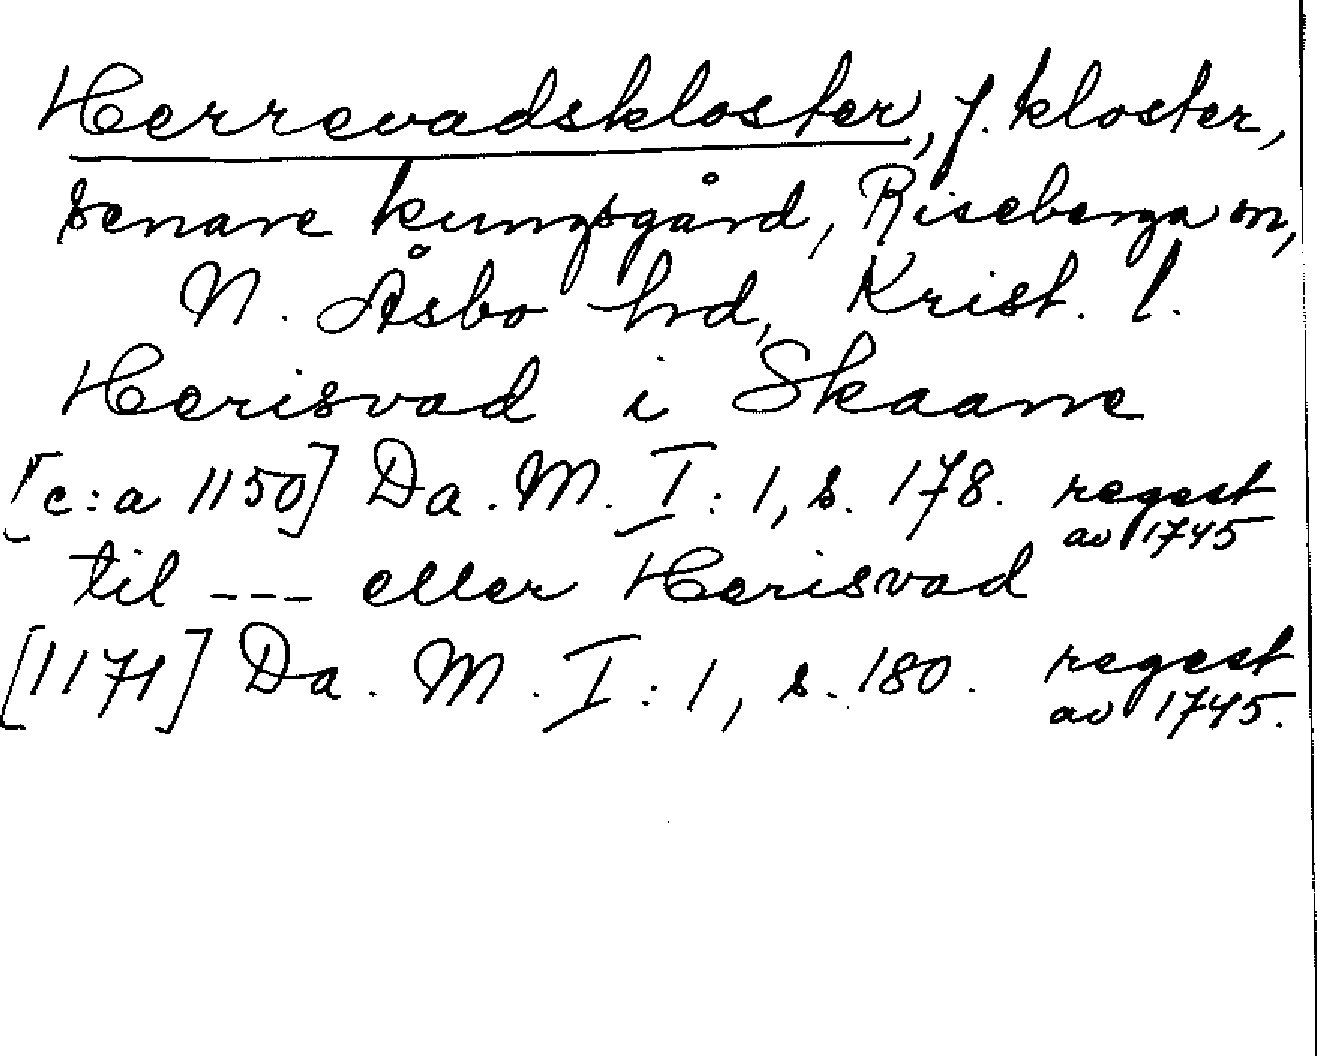 Herrevadskloster, f. kloster,
senare kungsgård, Riseberga sn,
N. Åsbo hd, Krist. l.
Herisvad i Skaane
[c:a 1150] Da. M. I:1, s. 178. regest
av 1745
til --- eller Herisvad
[1171] Da. M. I:1, s. 180. regest
av 1745.